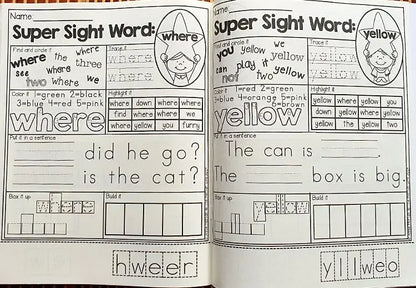 Name
Super Sight Word:
where
Find and circle it
where the where
three
see where
two where we
Trace it
where
where
Color it 1=green 2=black
3=blue 4=red 5=pink
where
Highlight it
where down where where
find where where we
where yellow you funny
Put it in a sentence
did he go?
is the cat?
Box it up
Build it
h w e e r
Name
Super Sight Word:
yellow
Find and circle it
you yellow we
can play it
not two yellow
Trace it
yellow
yellow
Color it 1=red 2=green
3=blue 4=orange 5=pink
6=brown
yellow
Highlight it
yellow where yellow you
down yellow where yellow
yellow the yellow two
Put it in a sentence
The can is
The box is big.
Box it up
Build it
y l l w e o